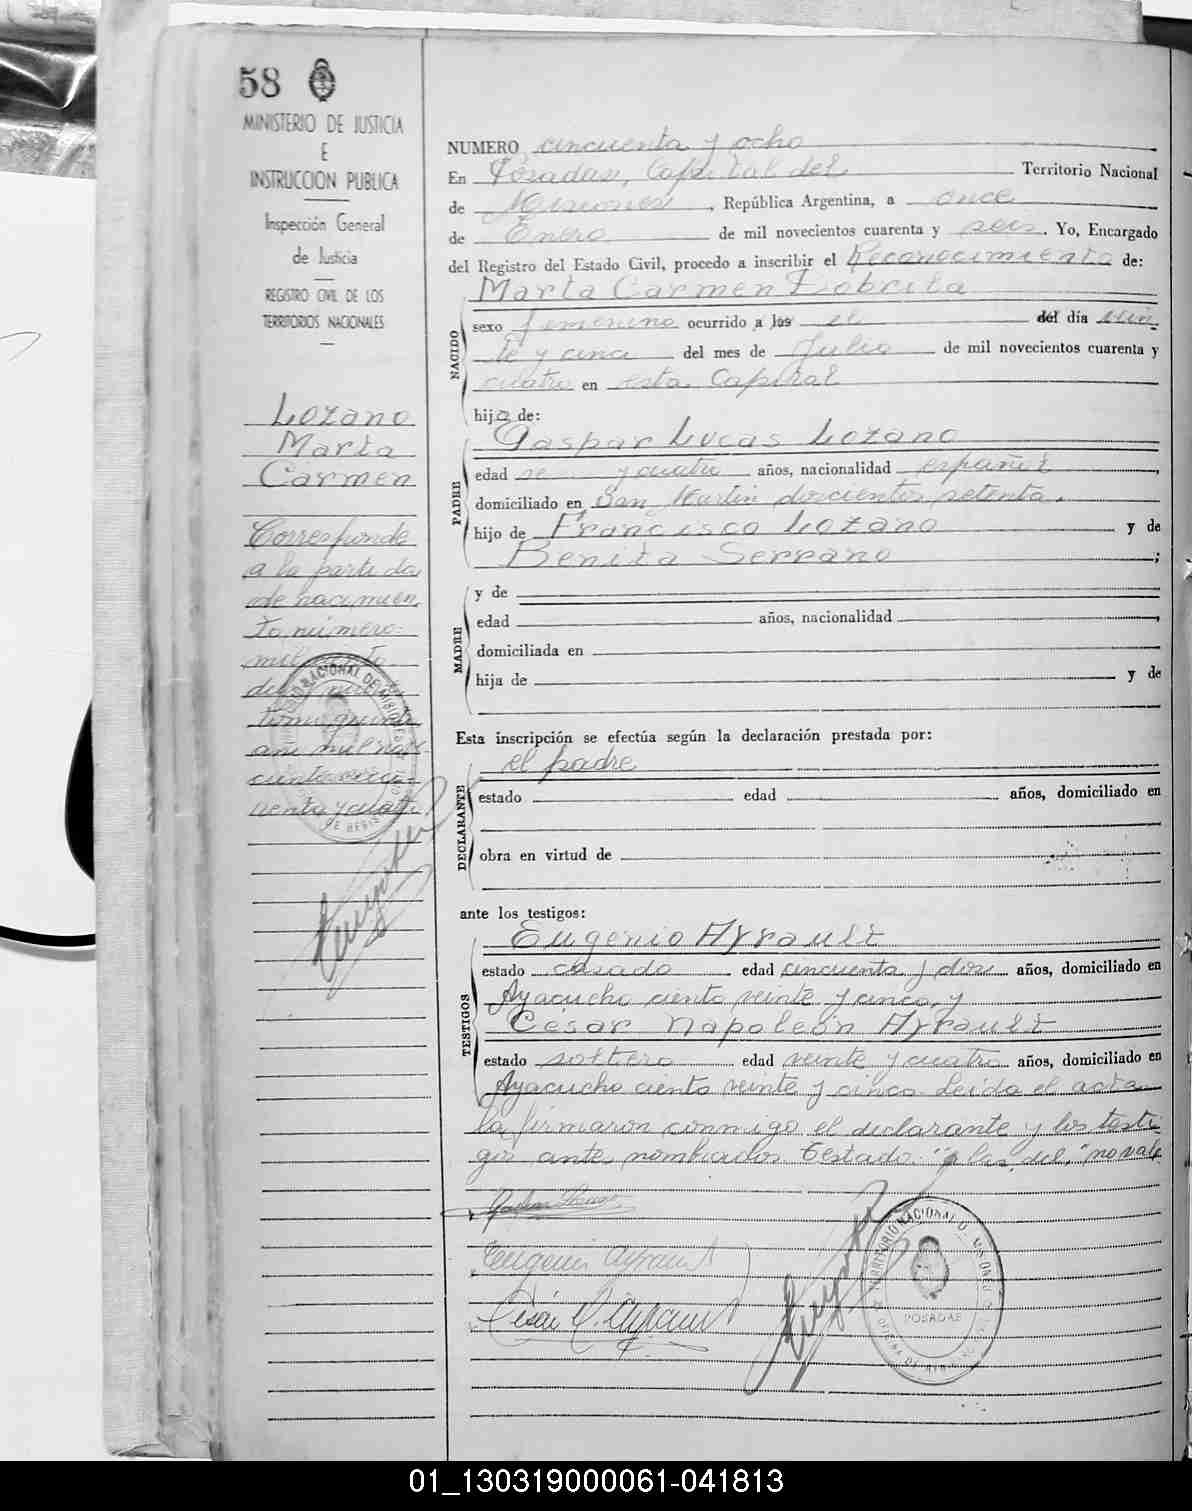 58
MINISTERIO DE JUSTICIA
E
INSTRUCCION PUBLICA
Inspección General
de Justicia
REGISTRO CIVIL DE LOS
TERRITORIOS NACIONALES
Lozano
Marta
Carmen
Corresponde
a la partida
de nacimien
to número
mil
tomo
mil nove
cientos
renta y cuatro
NUMERO cincuenta y ocho
En Posadas, Capital del Territorio Nacional
de Misiones, República Argentina, a once
de Enero de mil novecientos cuarenta y seis. Yo, Encargado
del Registro del Estado Civil, procedo a inscribir el Reconocimiento de:
Marta Carmen Dobrila
NACIDO
sexo femenino ocurrido a los el del día vein
te y cinco del mes de Julio de mil novecientos cuarenta y
cuatro en esta Capital
hija de:
PADRE
Gaspar Lucas Lozano
edad y cuatro años, nacionalidad español,
domiciliado en San Martin doscientos setenta.
hijo de Francisco Lozano y de
Benita Serrano;
MADRE
y de
edad años, nacionalidad
domiciliada en
hija de y de
Esta inscripción se efectúa según la declaración prestada por:
DECLARANTE
el padre
estado edad años, domiciliado en
obra en virtud de
ante los testigos:
TESTIGOS
Eugenio Ayrault
estado casado edad cincuenta y dos años, domiciliado en
Ayacucho ciento veinte y cinco, y
César Napoleón Ayrault
estado soltero edad veinte y cuatro años, domiciliado en
Ayacucho ciento veinte y cinco. Leida el acta
la firmaron conmigo el declarante y los testi
gos antes nombrados. Testado: "a los, del," no vale
Eugenio Ayrault
César N. Ayrault
TERRITORIO NACIONAL DE MISIONES
POSADAS
01_130319000061-041813